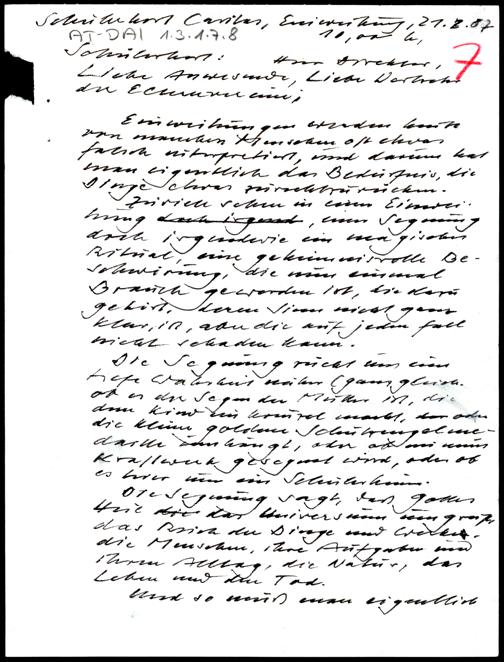 Schülerhort Caritas, Einweihung, 21.X.87
AT-DAI 1.3.1.7.8 10,00 h,
7
Schülerhort: Herr Direktor,
Liebe Anwesende, Liebe Vertreter
der
Einweihungen werden heute
von manchen Menschen oft etwas
falsch interpretiert, und darum hat
man eigentlich das Bedürfnis, die
Dinge etwas zurechtzurücken.
Zurück sehen in einer Einwei-
hung doch irgend, einer Segnung
doch irgendwie ein magisches
Ritual, eine geheimnisvolle Be-
schwörung, die nun einmal
Brauch geworden ist, die dazu
gehört, deren Sinn nicht ganz
klar, ist, aber die auf jeden Fall
nicht schaden kann.
Die Segnung rückt uns eine
tiefe Wahrheit näher (ganz gleich.
ob es der Segen der Mutter ist, die
dem Kind ein Kreuzel macht, das oder
die kleine goldene Schutzengelme-
daille umhängt, oder ob nun
Kraftwerk gesegnet wird, oder ob
es hier um ein Schülerheim.
Die Segnung sagt, daß Gottes
Heil die das Universum umgreift,
das Reich der Dinge und
die Menschen, ihre Aufgaben und
ihren Alltag, die Natur, das
Leben und den Tod.
Und so muß man eigentlich